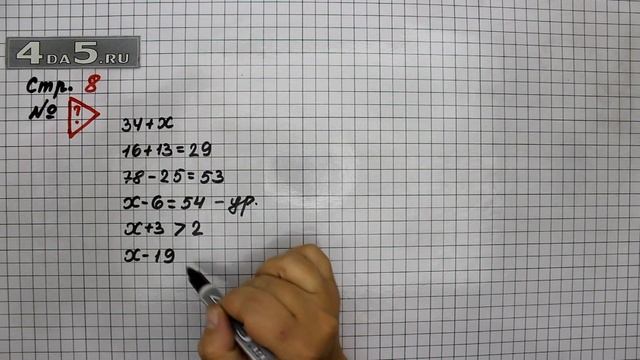 4DA5.RU
Стр. 8
№ ?!
34+x
16+13=29
78-25=53
x-6=54 -ур.
x+3>2
x-19